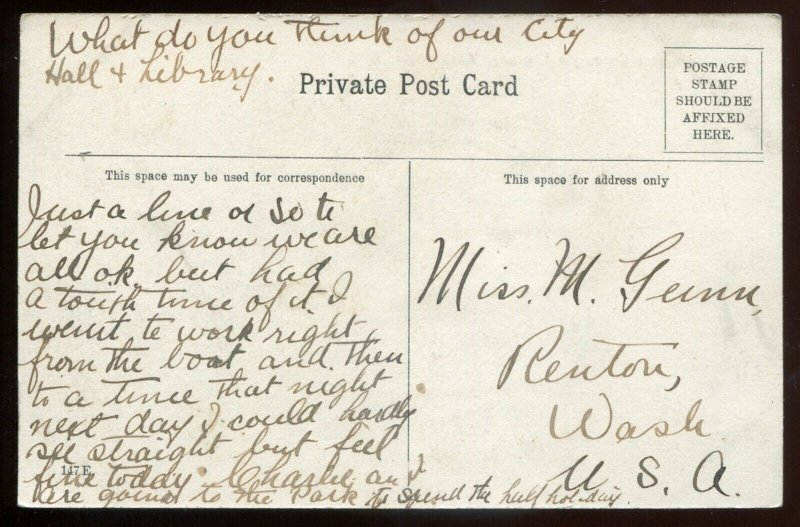 What do you think of our City
Hall & Library.
Private Post Card
POSTAGE
STAMP
SHOULD BE
AFFIXED
HERE.
This space may be used for correspondence
This space for address only
Just a line or so to
let you know we are
all o.k. but had
a tough time of it. I
went to work right
from the boat and then
to a time that night
next day I could hardly
see straight but feel
fine today. Charlie and I
are going to the Park to spend the half holiday.
147E
Miss. M. Gunn,
Renton,
Wash.
U. S. A.